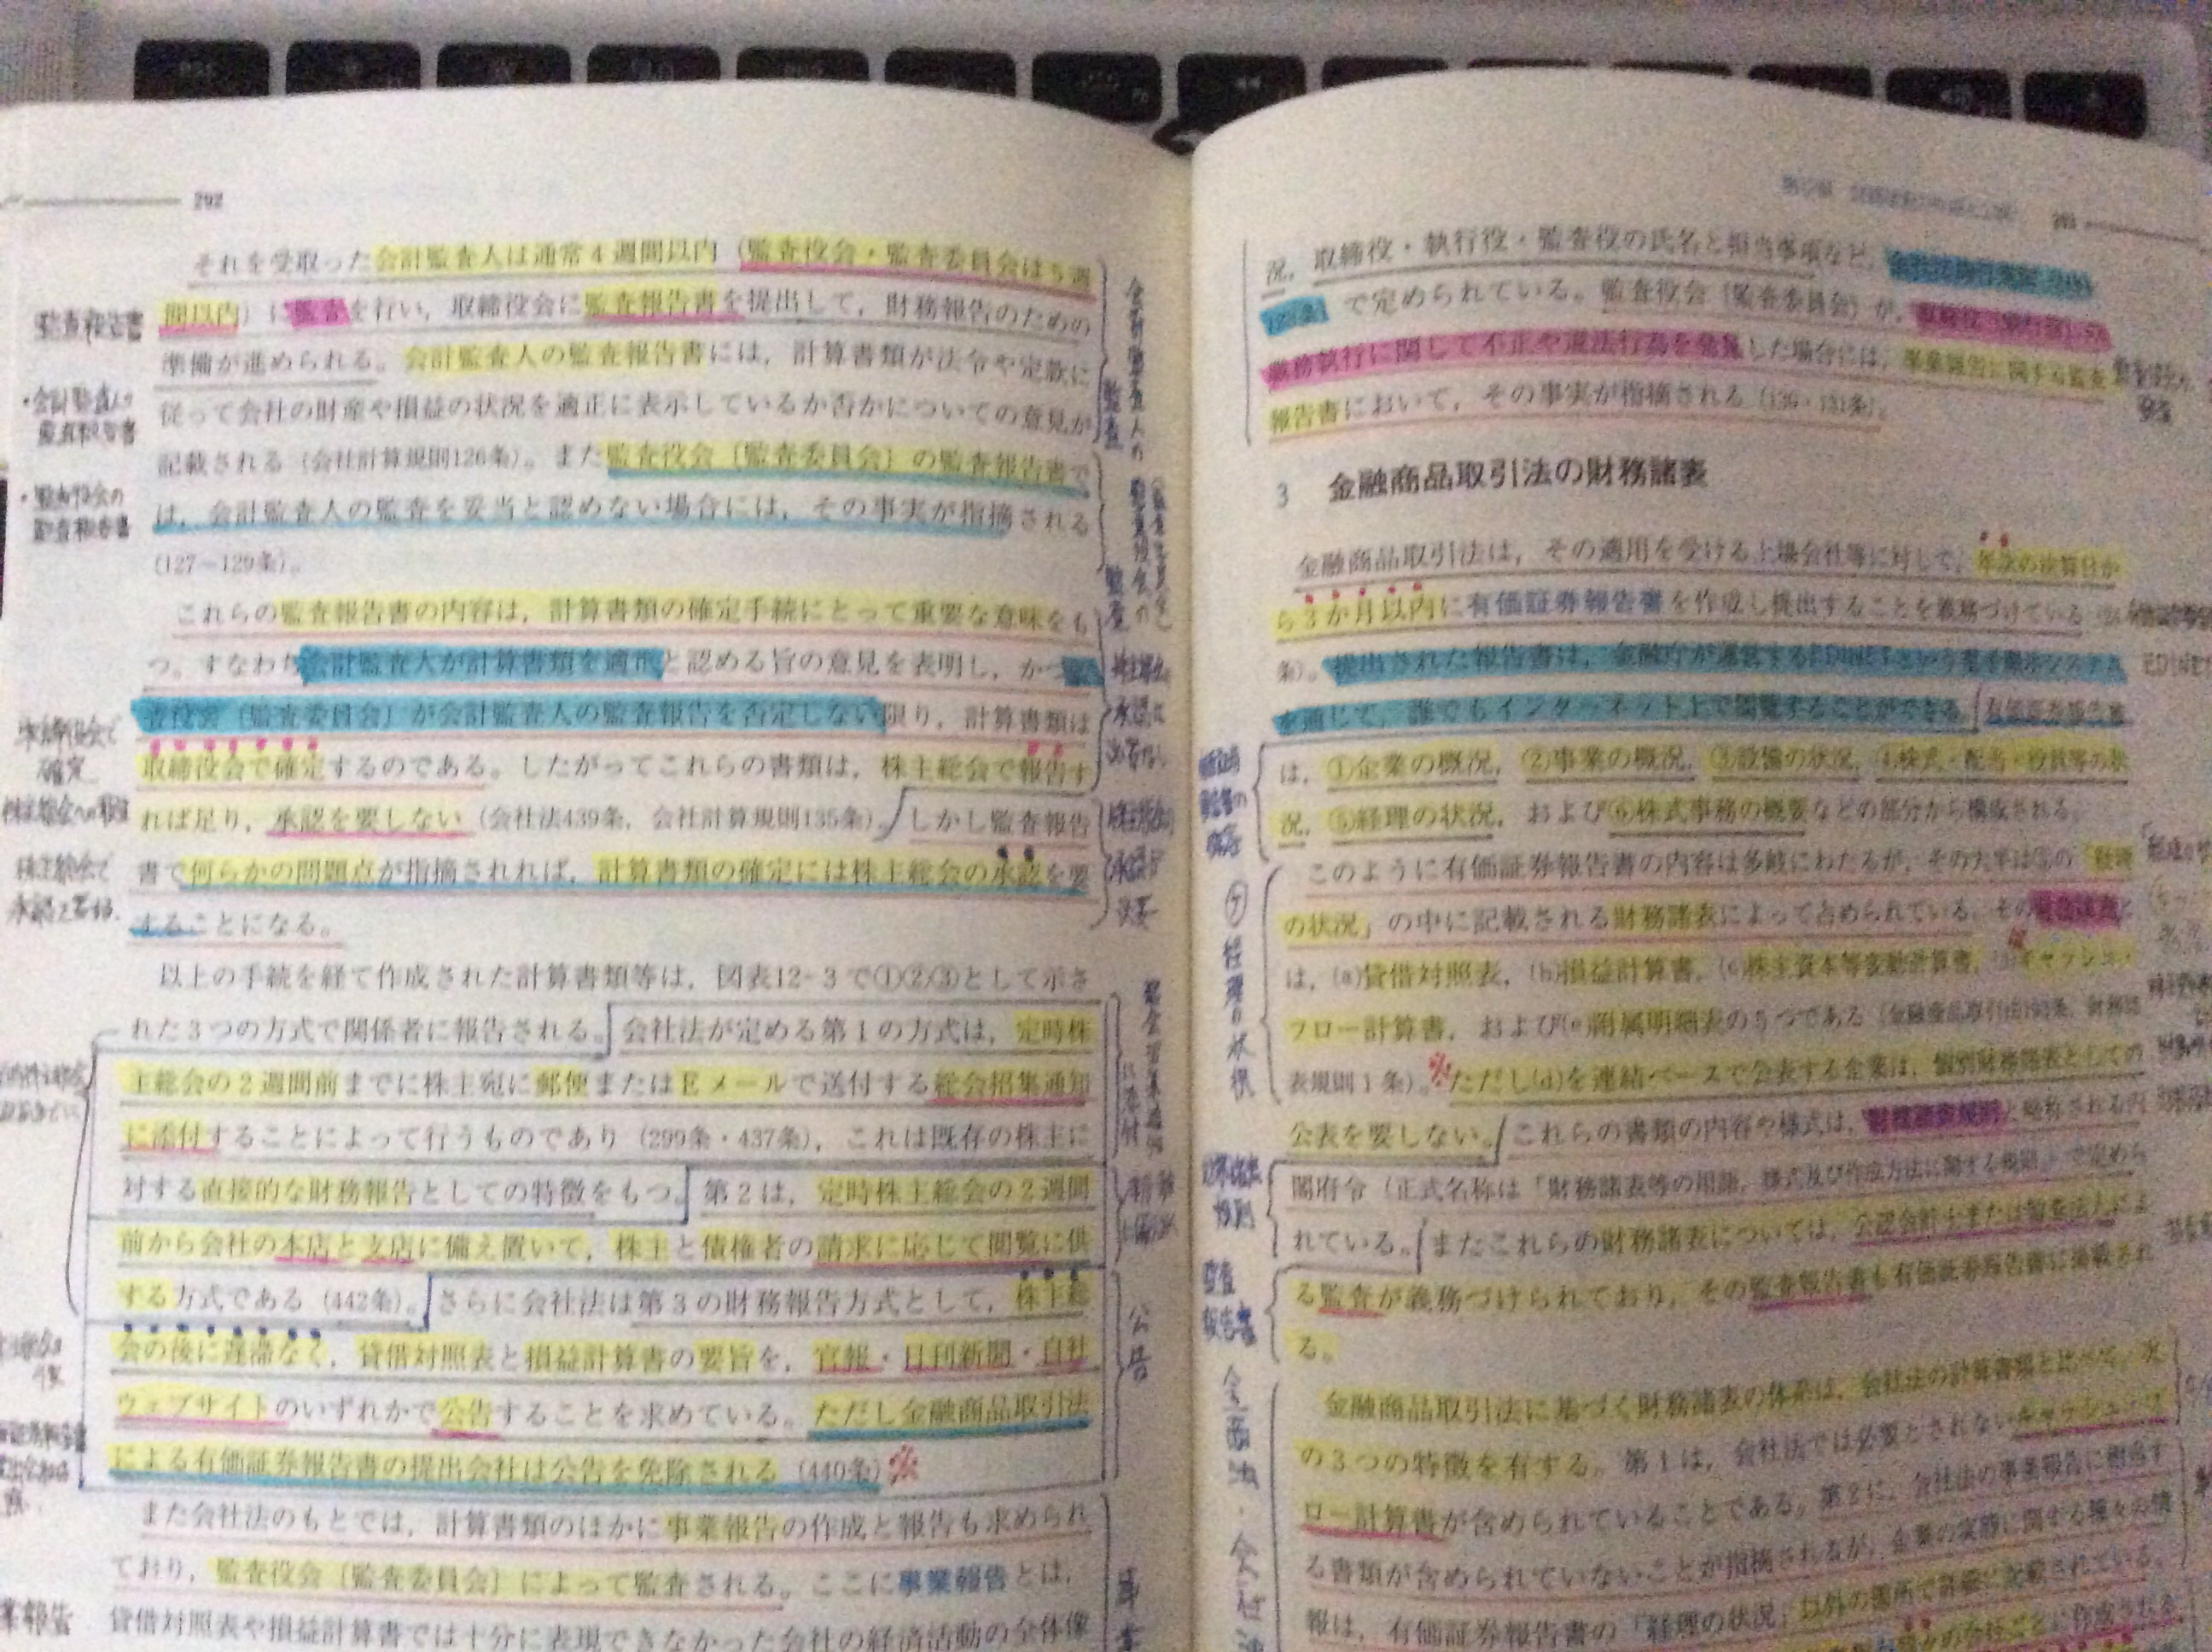 292
それを受取った会計監査人は通常4週間以内（監査役会・監査委員会は5週
間以内）に監査を行い，取締役会に監査報告書を提出して，財務報告のための
準備が進められる。会計監査人の監査報告書には，計算書類が法令や定款に
従って会社の財産や損益の状況を適正に表示しているか否かについての意見が
記載される（会社計算規則126条）。また監査役会〔監査委員会〕の監査報告書で
は，会計監査人の監査を妥当と認めない場合には，その事実が指摘される
（127－129条）。
これらの監査報告書の内容は，計算書類の確定手続にとって重要な意味をも
つ。すなわち会計監査人が計算書類を適正と認める旨の意見を表明し，かつ監
査役会〔監査委員会〕が会計監査人の監査報告を否定しない限り，計算書類は
取締役会で確定するのである。したがってこれらの書類は，株主総会で報告す
れば足り，承認を要しない（会社法439条，会社計算規則135条）。しかし監査報告
書で何らかの問題点が指摘されれば，計算書類の確定には株主総会の承認を要
することになる。
以上の手続を経て作成された計算書類等は，図表12-3で①②③として示さ
れた3つの方式で関係者に報告される。会社法が定める第1の方式は，定時株
主総会の2週間前までに株主宛に郵便またはEメールで送付する総会招集通知
に添付することによって行うものであり（299条・437条），これは既存の株主に
対する直接的な財務報告としての特徴をもつ。第2は，定時株主総会の2週間
前から会社の本店と支店に備え置いて，株主と債権者の請求に応じて閲覧に供
する方式である（442条）。さらに会社法は第3の財務報告方式として，株主総
会の後に遅滞なく，貸借対照表と損益計算書の要旨を，官報・日刊新聞・自社
ウェブサイトのいずれかで公告することを求めている。ただし金融商品取引法
による有価証券報告書の提出会社は公告を免除される（440条）※
また会社法のもとでは，計算書類のほかに事業報告の作成と報告も求められ
ており，監査役会〔監査委員会〕によって監査される。ここに事業報告とは，
貸借対照表や損益計算書では十分に表現できなかった会社の経済活動の全体像
監査報告書
・会計監査人の
監査報告書
・監査役会の
監査報告書
取締役会で
確定
株主総会で
承認を要する
公告
況，取締役・執行役・監査役の氏名と担当事項など，
で定められている。監査役会〔監査委員会〕が，取締役〔執行役〕の
業務執行に関して不正や違法行為を発見した場合には，事業報告に関する監査
報告書において，その事実が指摘される（130・131条）。
3 金融商品取引法の財務諸表
金融商品取引法は，その適用を受ける上場会社等に対して，年次の決算日か
ら3か月以内に有価証券報告書を作成し提出することを義務づけている
条）。提出された報告書は，金融庁が運営するEDINETという電子開示システム
を通じて，誰でもインターネット上で閲覧することができる。有価証券報告書
は，①企業の概況，②事業の概況，③設備の状況，④株式・配当・役員等の状
況，⑤経理の状況，および⑥株式事務の概要などの部分から構成される。
このように有価証券報告書の内容は多岐にわたるが，その大半は⑤の「経理
の状況」の中に記載される財務諸表によって占められている。その財務諸表と
は，(a)貸借対照表，(b)損益計算書，(c)株主資本等変動計算書，(d)キャッシュ・
フロー計算書，および(e)附属明細表の5つである（金融商品取引法193条，財務諸
表規則1条）。※ただし(d)を連結ベースで公表する企業は，個別財務諸表としての
公表を要しない。これらの書類の内容や様式は，財務諸表規則と略称される内
閣府令（正式名称は「財務諸表等の用語，様式及び作成方法に関する規則」）で定めら
れている。またこれらの財務諸表については，公認会計士または監査法人によ
る監査が義務づけられており，その監査報告書も有価証券報告書に掲載され
る。
金融商品取引法に基づく財務諸表の体系は，会社法の計算書類と比べて，次
の3つの特徴を有する。第1は，会社法では必要とされないキャッシュ・フ
ロー計算書が含められていることである。第2に，会社法の事業報告に相当す
る書類が含められていないことが指摘されるが，企業の実態に関する種々の情
報は，有価証券報告書の「経理の状況」以外の箇所で詳細に記載されている。
⑤経理の状況
監査
報告書
金商法・会社法